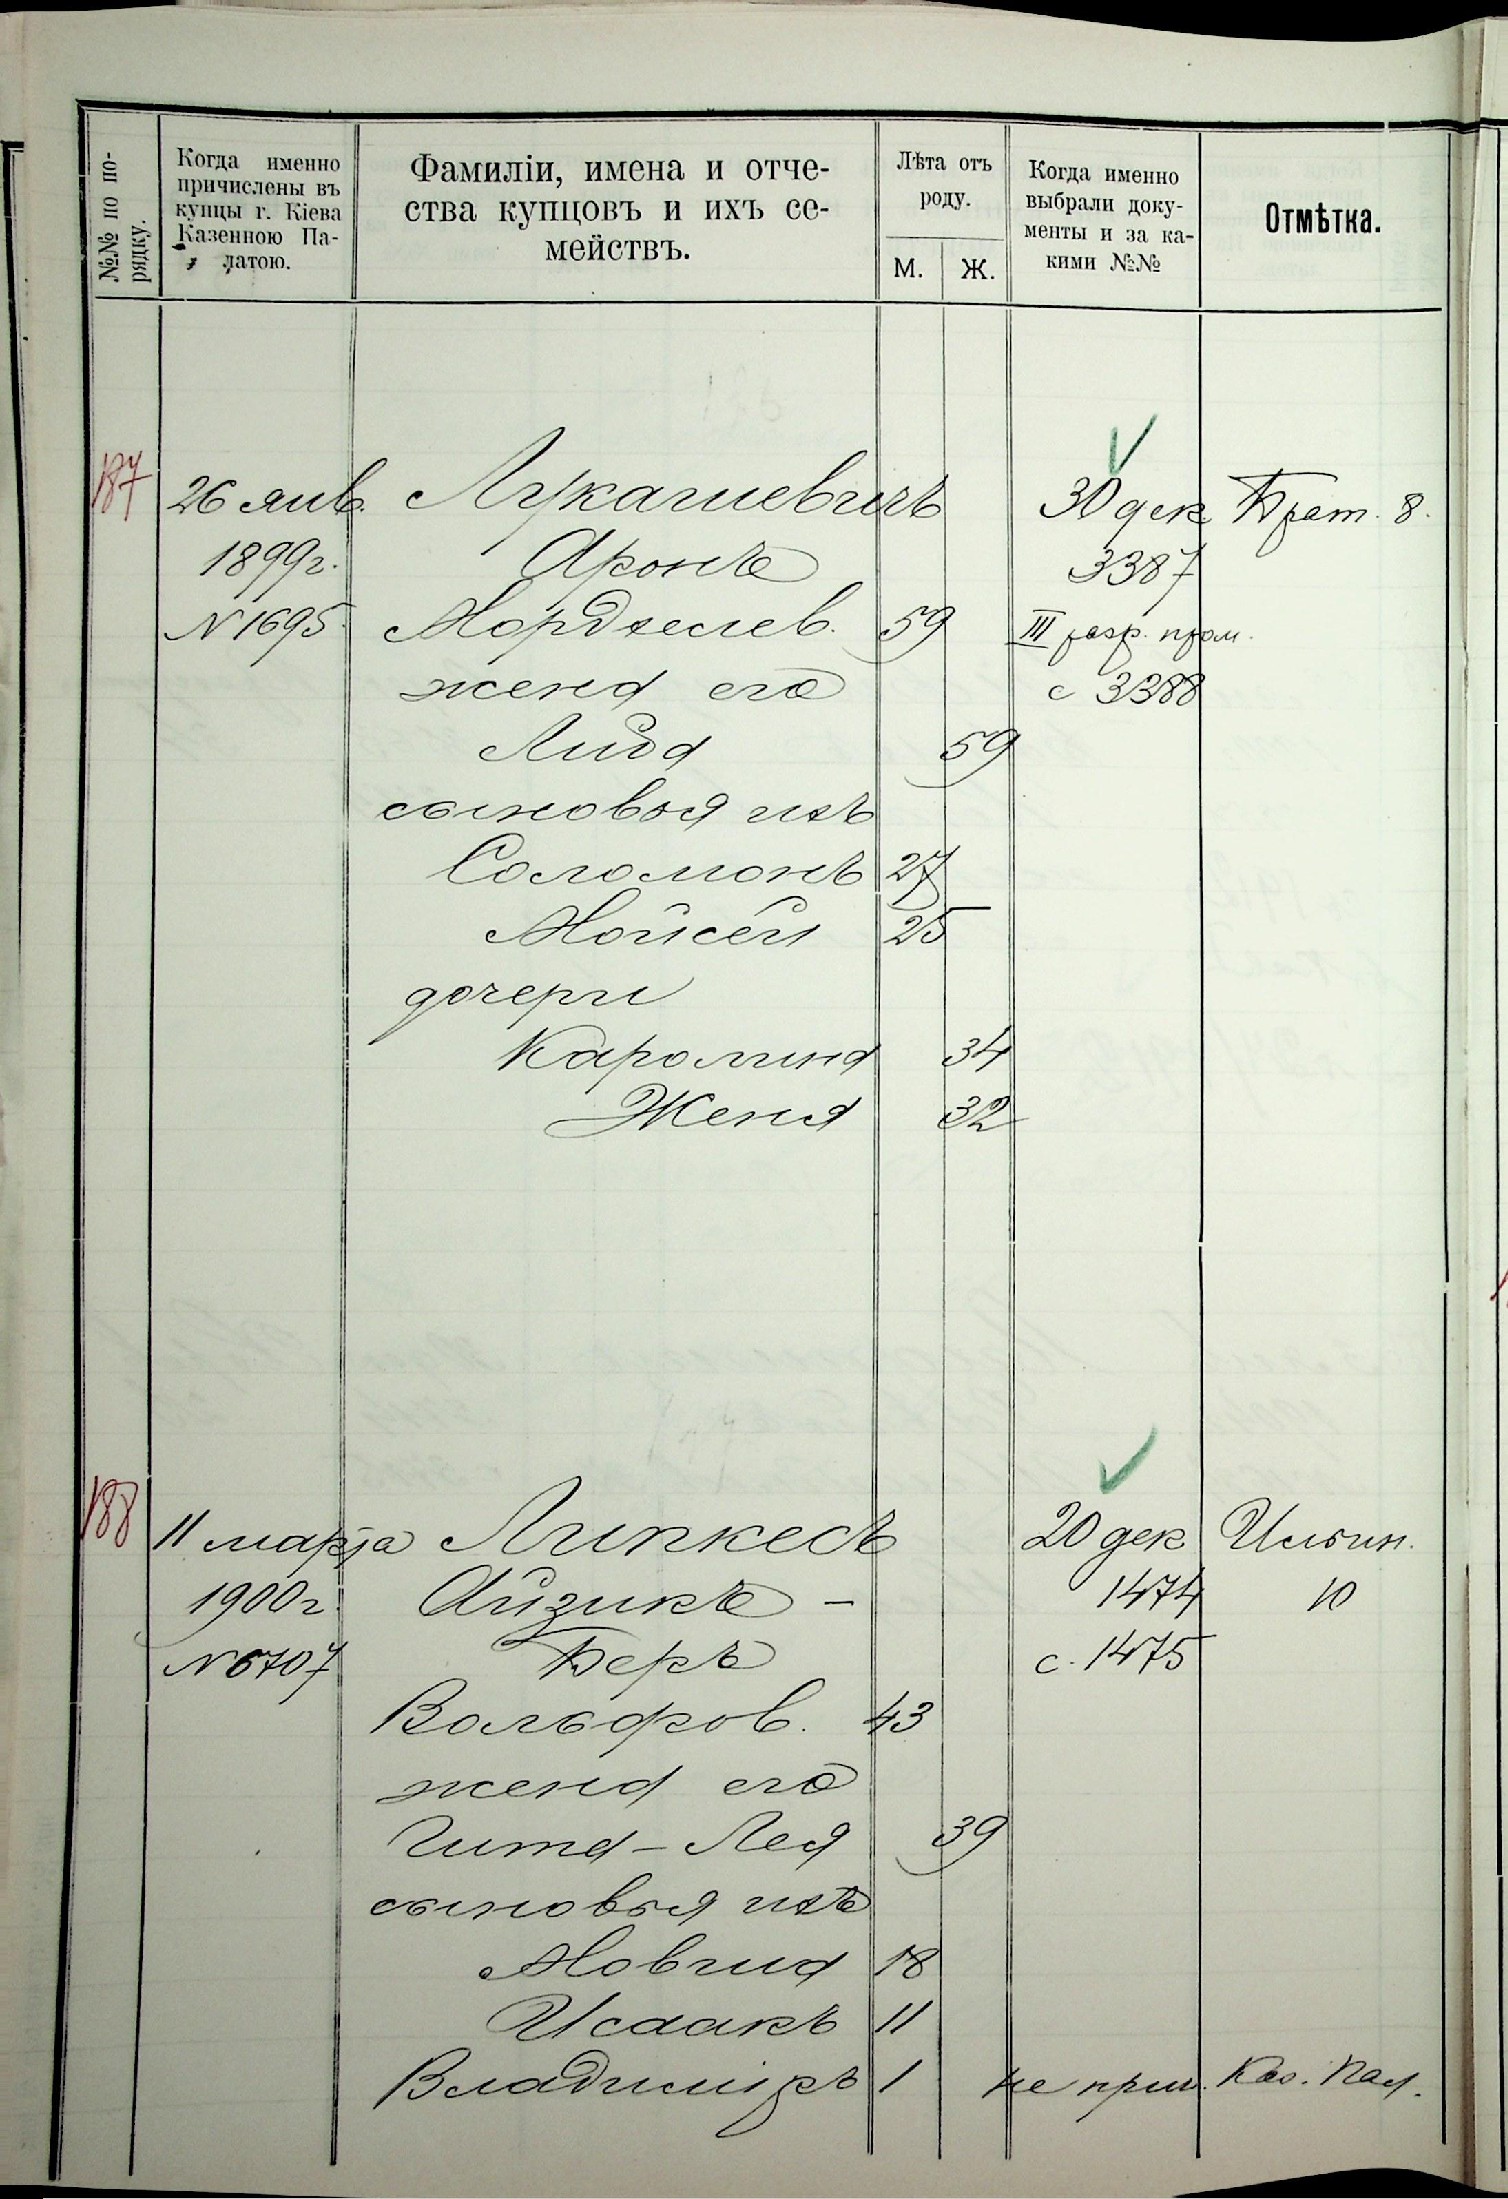 №№ по по-
рядку.
Когда именно
причислены въ
купцы г. Кіева
Казенною Па-
латою.
Фамиліи, имена и отче-
ства купцовъ и ихъ се-
мействъ.
Лѣта отъ
роду.
М. Ж.
Когда именно
выбрали доку-
менты и за ка-
кими №№
Отмѣтка.
187 26 янв. Лукашевичъ 30 дек Брат. 8.
1899г. Аронъ 3387
N 1695. Мордхелев. 59 III разр. пром.
жена его с 3388
Либа 59
сыновья ихъ
Соломонъ 27
Мойсей 25
дочери
Каролина 34
Женя 32
188 11 марта Липкесъ 20 дек Ильин.
1900г. Айзикъ - 1474 10
N 6707 Беръ с. 1475
Вольфов. 43
жена его
Гитя-Лея 39
сыновья ихъ
Мовша 18
Исаакъ 11
Владиміръ 1 не прич. Каз. Пал.